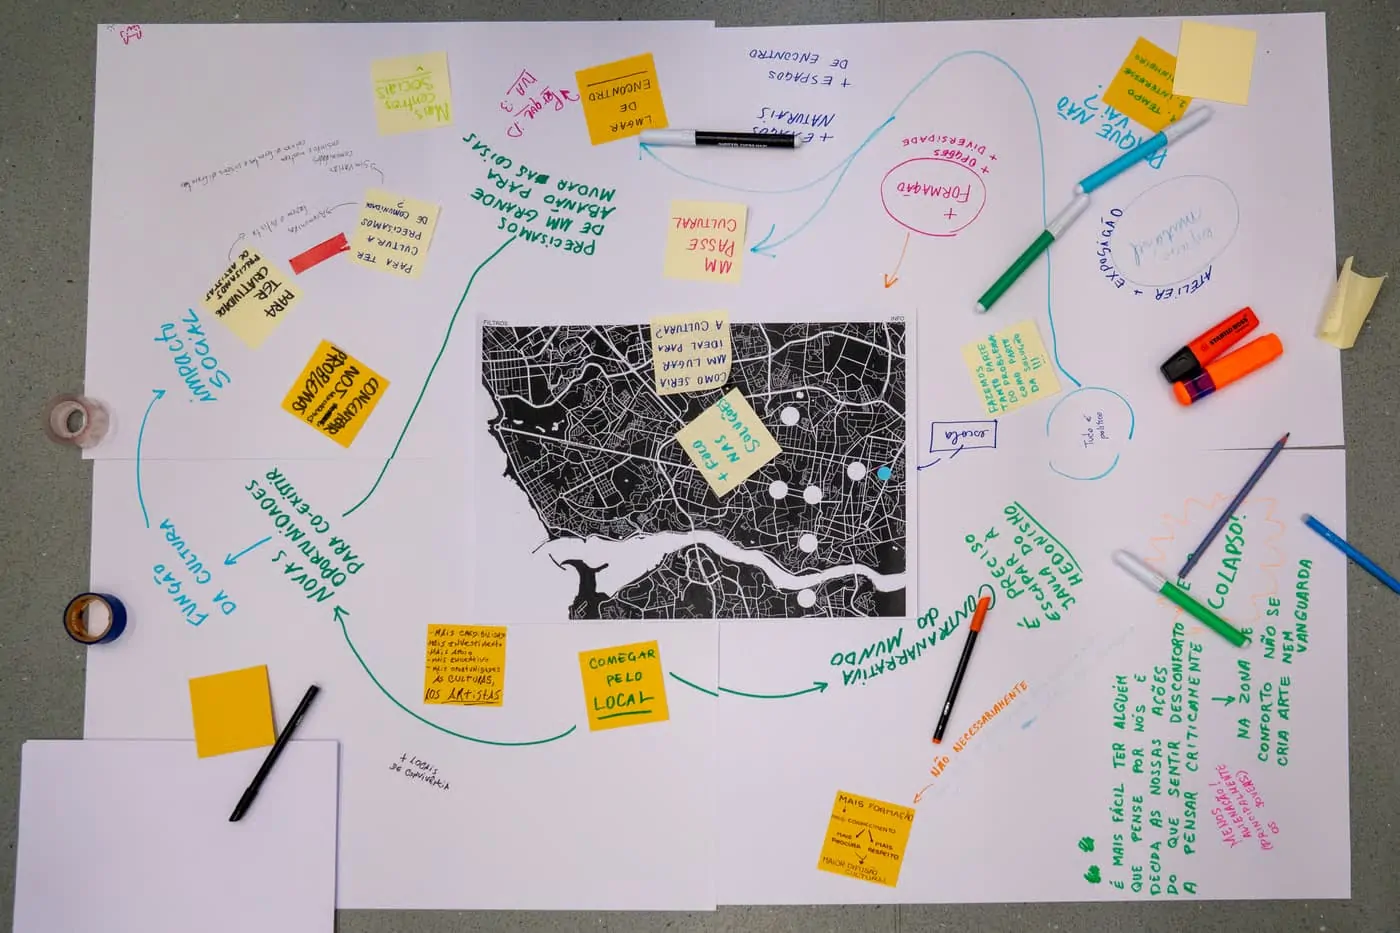 Mais
centros
sociais
Porquê :D
LUGAR
DE
ENCONTRO
+ ESPAÇOS
NATURAIS
+ ESPAÇOS
DE ENCONTRO
+
FORMAÇÃO
+ OPÇÕES
+ DIVERSIDADE
PORQUE NÃO
VAI?
1. TEMPO
2. INTERESSE
3. DINHEIRO
ATELIER + EXPOSIÇÃO
espaço
mutável
PRECISAMOS
DE UM GRANDE
ABANÃO PARA
MUDAR AS COISAS
UM
PASSE
CULTURAL
PARA TER
CULTURA
PRECISAMOS
DE COMUNIDADE
?
PARA
TER
CRIATIVIDADE
PRECISAMOS
DE ARTISTAS
IMPACTO
SOCIAL
CONCENTRAR
NOS
PROBLEMAS
FILTROS
INFO
COMO SERIA
UM LUGAR
IDEAL PARA
A CULTURA?
+ FOCO
NAS
SOLUÇÕES
FAZEMOS PARTE
TANTO PARTE
DO PROBLEMA
COMO PARTE
DA SOLUÇÃO
!!!
STABILO BOSS
escola
Tudo é
político
NOVAS
OPORTUNIDADES
PARA CO-EXISTIR
FUNÇÃO
DA CULTURA
É PRECISO
ESCAPAR DO A
JAULA DO
HEDONISMO
CONTRANARRATIVA
do MUNDO
- MAIS CREDIBILIDADE
- MAIS INVESTIMENTO
- MAIS APOIO
- MAIS EDUCATIVO
- MAIS OPORTUNIDADES
ÀS CULTURAS,
AOS ARTISTAS
COMEÇAR
PELO
LOCAL
NÃO NECESSARIAMENTE
MAIS FORMAÇÃO
MAIS CONHECIMENTO
MAIS
PROCURA
MAIS
RESPEITO
MAIOR DIFUSÃO
CULTURAL
É MAIS FÁCIL TER ALGUÉM
QUE PENSE POR NÓS E
DECIDA AS NOSSAS AÇÕES
DO QUE SENTIR DESCONFORTO E
A PENSAR CRITICAMENTE
COLAPSO!
NA ZONA DE
CONFORTO NÃO SE
CRIA ARTE NEM
VANGUARDA
MENOS
ALIENAÇÃO!
(PRINCIPALMENTE
OS JOVENS)